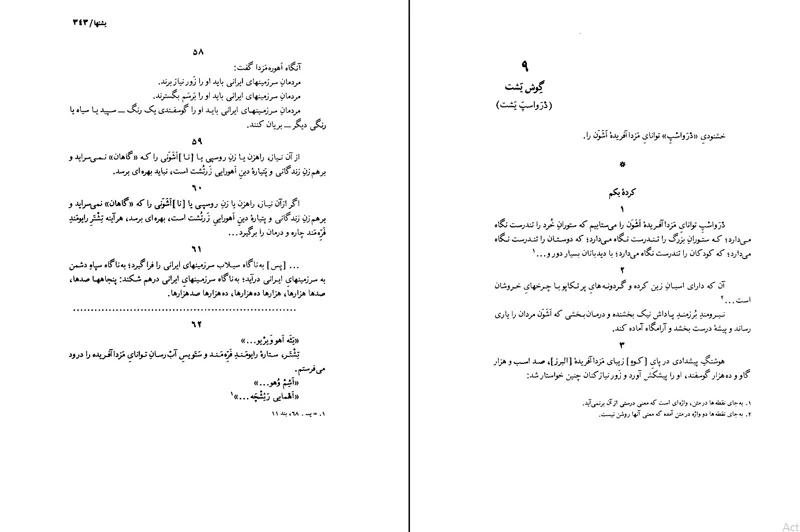 یشتها/ ۳۴۳
۵۸
آنگاه اَهوره‌مَزدا گفت:
مردمانِ سرزمینهای ایرانی باید او را زَور نیاز برند.
مردمانِ سرزمینهای ایرانی باید او را بَرسَم بگسترند.
مردمانِ سرزمینهای ایرانی باید او را گوسفندی یک رنگ ــ سپید یا سیاه یا
رنگی دیگر ــ بریان کنند.
۵۹
از آن نیاز، راهزن یا زنِ روسپی یا [نا] اَشَوَنی را که «گاهان» نمی‌سراید و
برهم‌زنِ زندگانی و پَتیارهٔ دینِ اَهورایی زَرتُشت است، نباید بهره‌ای برسد.
۶۰
اگر ازآن نیاز، راهزن یا زنِ روسپی یا [نا] اَشَوَنی را که «گاهان» نمی‌سراید و
برهم‌زنِ زندگانی و پتیارهٔ دینِ اَهوراییِ زَرتُشت است، بهره‌ای برسد، هرآینه تِشتَرِ رایومَندِ
فَرّه‌مَند چاره و درمان را برگیرد...
۶۱
... [پس] به‌ناگاه سیلاب سرزمینهای ایرانی را فرا گیرد؛ به‌ناگاه سپاهِ دشمن
به سرزمینهای ایرانی درآید؛ به‌ناگاه سرزمینهای ایرانی درهم شکند: پنجاهها صدها،
صدها هزارها، هزارها ده‌هزارها، ده‌هزارها صدهزارها.
................................................
۶۲
«یَثَه اَهو وَیریو...»
تِشتَر، ستارهٔ رایومندِ فَرّه‌مَند و سَتَویسِ آبْ‌رسانِ توانایِ مَزداآفریده را درود
می‌فرستم.
«اَشِم وُهو...»
«اَهمایی رَیَشچَه...»۱
۱. = یسـ . ۶۸، بند ۱۱
۹
گوش یَشت
(دُرواسپ یَشت)
خشنودیِ «دُرواسپِ» توانایِ مَزداآفریدهٔ اَشَوَن را.
*
کردهٔ یکم
۱
دُرواسپِ توانایِ مَزداآفریدهٔ اَشَوَن را می‌ستاییم که ستورانِ خُرد را تندرست نگاه
می‌دارد؛ که ستورانِ بزرگ را تندرست نگاه می‌دارد؛ که دوستان را تندرست نگاه
می‌دارد؛ که کودکان را تندرست نگاه می‌دارد؛ با دیدبانان بسیار دور و...۱
۲
آن که دارای اسبانِ زین کرده و گردونه‌های پرتکاپو با چرخهای خروشان
است...۲
نیرومندِ بُرزمندِ پاداشِ نیک بخشنده و درمان‌بخشی که اَشَوَن مردان را یاری
رساند و پیشهٔ درست بخشد و آرامگاه آماده کند.
۳
هوشنگِ پیشدادی در پایِ [کوهِ] زیبایِ مَزداآفریدهٔ [البرز]، صد اسب و هزار
گاو و ده‌هزار گوسفند، او را پیشکش آورد و زَور نیازکنان چنین خواستار شد:
۱. به‌جای نقطه‌ها در متن، واژه‌ای است که معنی درستی از آن برنمی‌آید.
۲. به‌جای نقطه‌ها دو واژه در متن آمده که معنی آنها روشن نیست.
Act